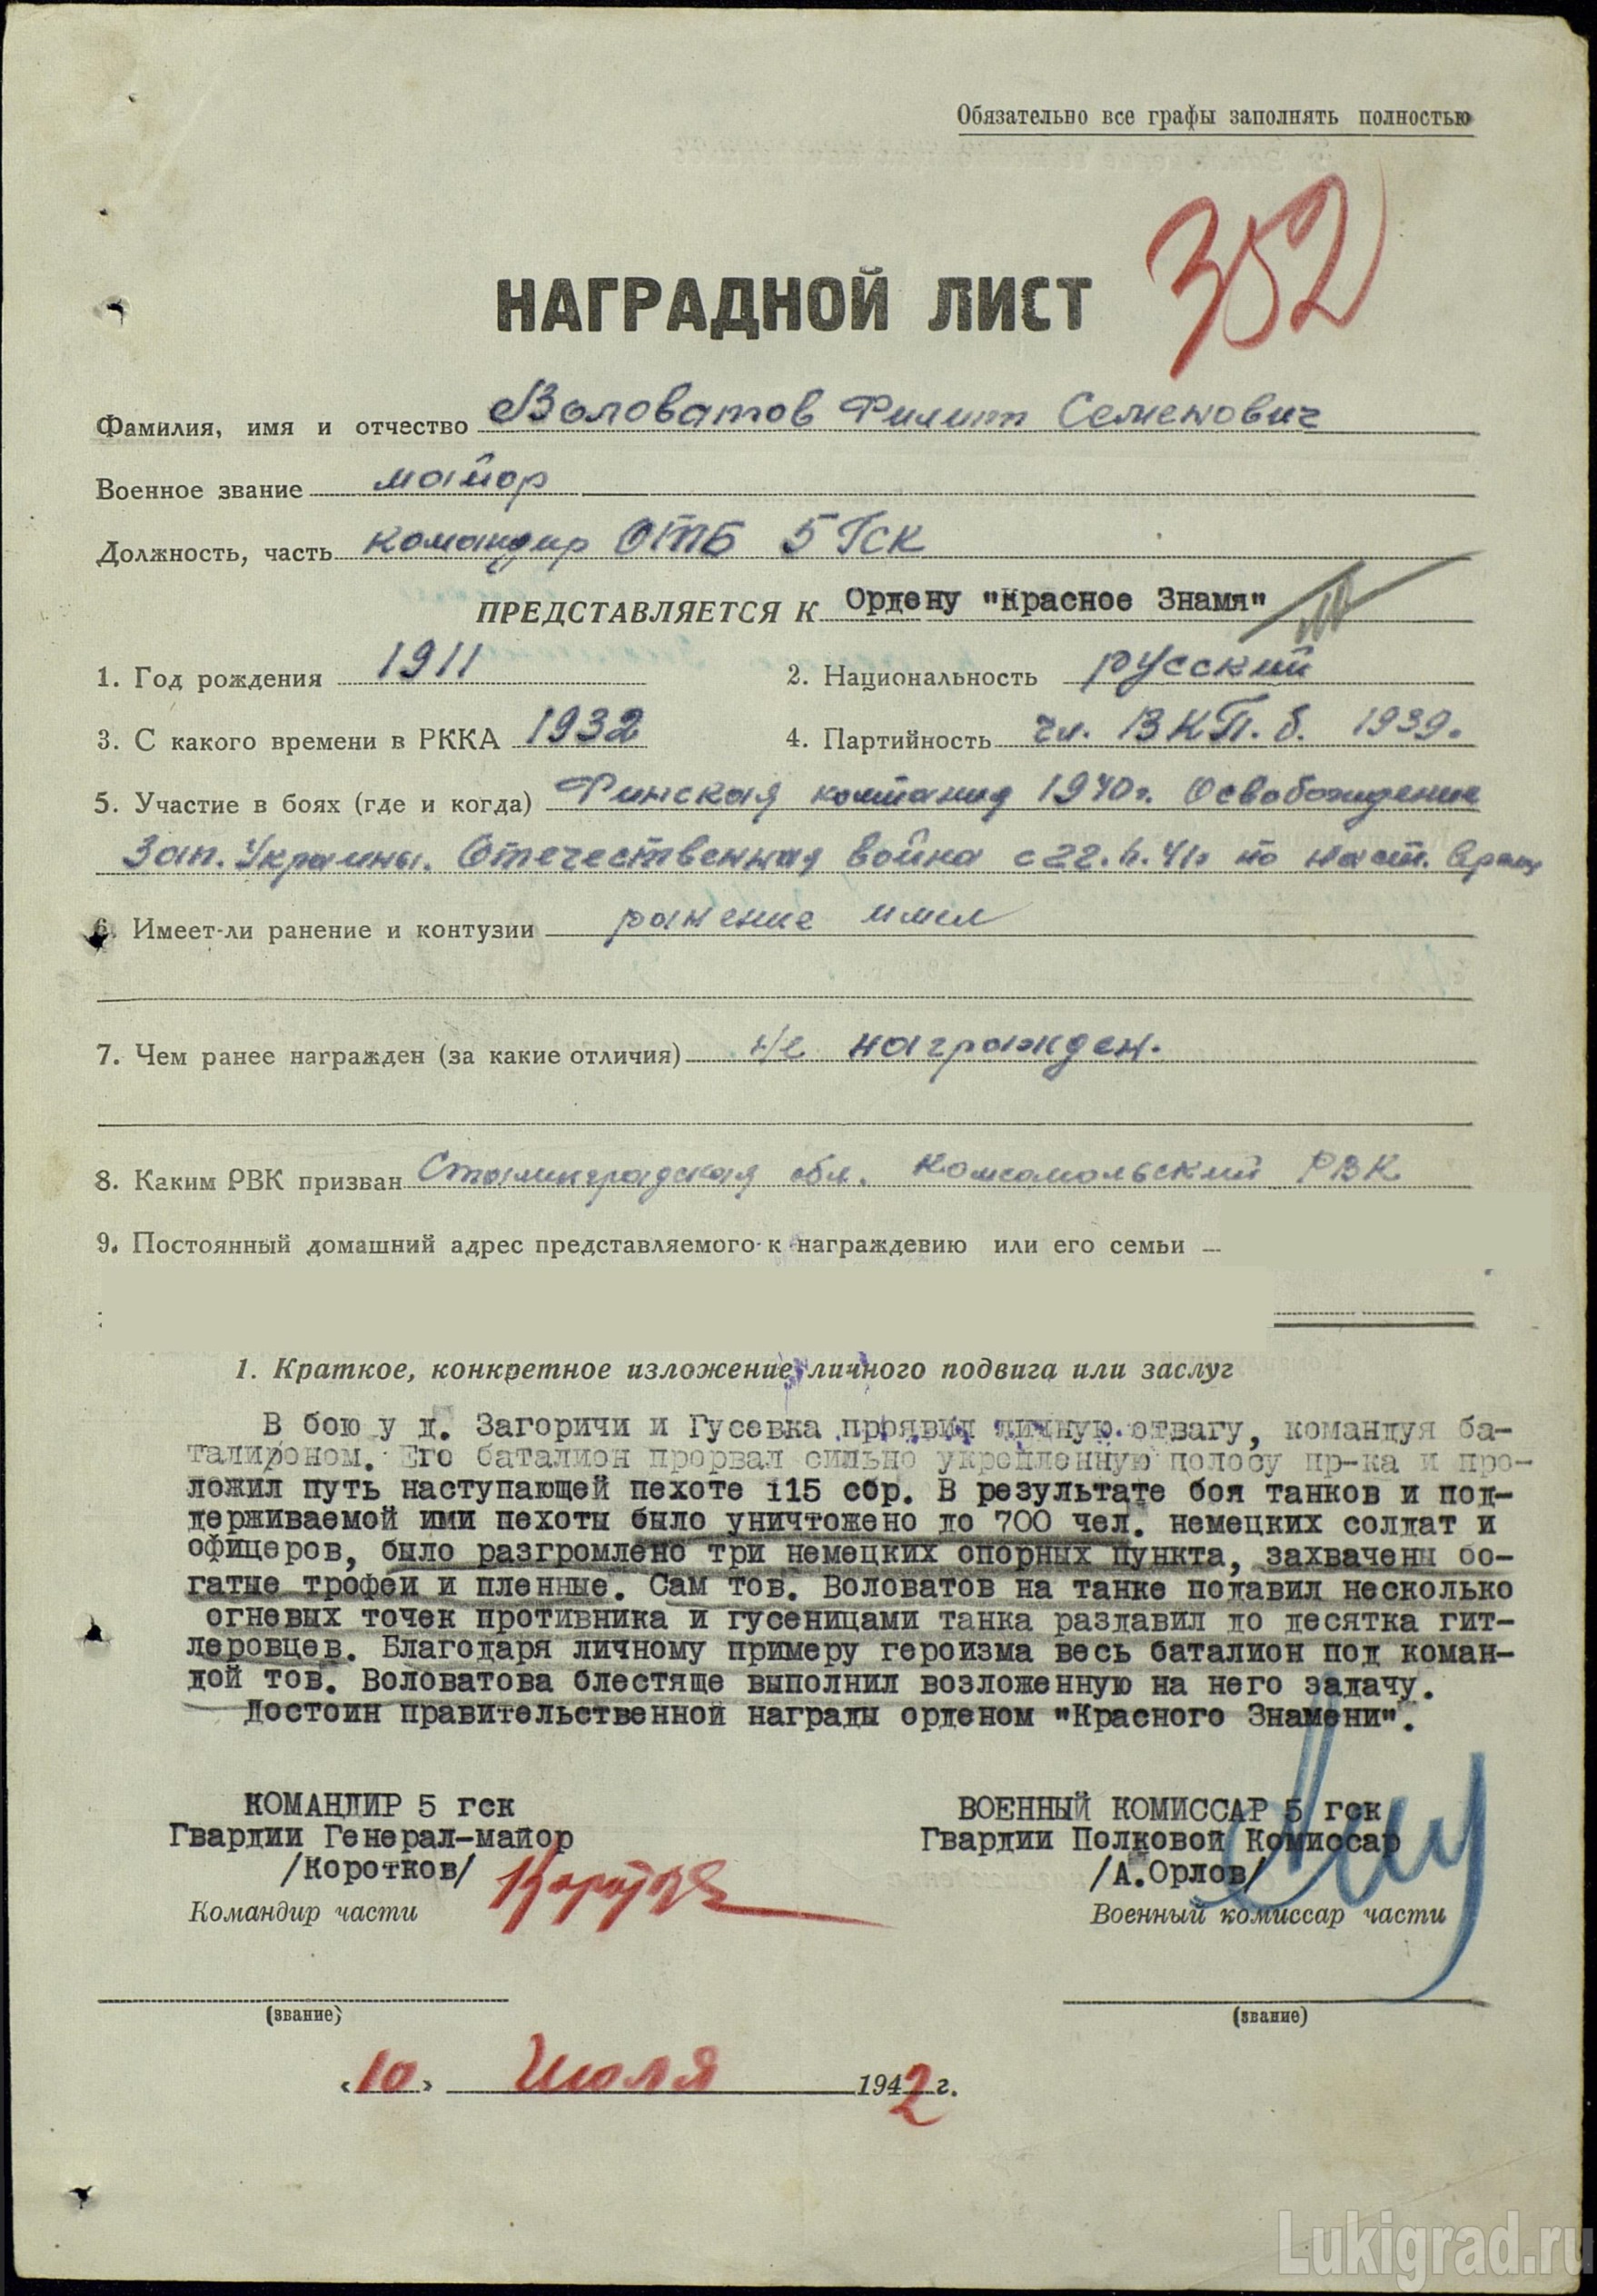 Обязательно все графы заполнять полностью
352
НАГРАДНОЙ ЛИСТ
Фамилия, имя и отчество Воловатов Филипп Семенович
Военное звание майор
Должность, часть командир ОТБ 5 ГСК
ПРЕДСТАВЛЯЕТСЯ К Ордену "Красное Знамя"
1. Год рождения 1911 2. Национальность русский
3. С какого времени в РККА 1932 4. Партийность чл. ВКП.б. 1939.
5. Участие в боях (где и когда) Финская компания 1940г. Освобождение
Зап. Украины. Отечественная война с 22.6.41г по наст. время
6. Имеет-ли ранение и контузии ранение имел
7. Чем ранее награжден (за какие отличия) не награжден.
8. Каким РВК призван Сталинградская обл. Комсомольский РВК
9. Постоянный домашний адрес представляемого к награждению или его семьи
1. Краткое, конкретное изложение личного подвига или заслуг
В бою у д. Загоричи и Гусевка проявил личную отвагу, командуя ба-
талионом. Его баталион прорвал сильно укрепленную полосу пр-ка и про-
ложил путь наступающей пехоте 115 сбр. В результате боя танков и под-
держиваемой ими пехоты было уничтожено до 700 чел. немецких солдат и
офицеров, было разгромлено три немецких опорных пункта, захвачены бо-
гатые трофеи и пленные. Сам тов. Воловатов на танке подавил несколько
огневых точек противника и гусеницами танка раздавил до десятка гит-
леровцев. Благодаря личному примеру героизма весь баталион под коман-
дой тов. Воловатова блестяще выполнил возложенную на него задачу.
Достоин правительственной награды орденом "Красного Знамени".
КОМАНДИР 5 гск ВОЕННЫЙ КОМИССАР 5 гск
Гвардии Генерал-майор Гвардии Полковой Комиссар
/Коротков/ /А.Орлов/
Командир части Военный комиссар части
(звание) (звание)
«10» Июля 1942 г.
Lukigrad.ru